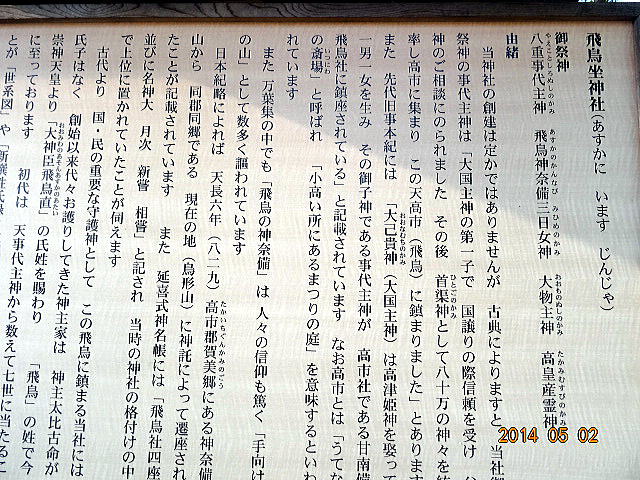 飛鳥坐神社(あすかに います じんじゃ)
御祭神
八重事代主神 飛鳥神奈備三日女神 大物主神 高皇産霊神
やえことしろぬしのかみ あすかのかんなび みひめのかみ おおものぬしのかみ たかみむすびのかみ
由緒
当神社の創建は定かではありませんが 古典によりますと 当社御
祭神の事代主神は「大国主神の第一子で 国譲りの際信頼を受け
神のご相談にのられました その後 首渠神として八十万の神々を統
ひとごのかみ
率し高市に集まり この天高市(飛鳥)に鎮まりました」とあります
また 先代旧事本紀には 「大己貴神(大国主神)は高津姫神を娶って
おおなむちのかみ
一男一女を生み その御子神である事代主神が 高市社である甘南備
飛鳥社に鎮座されている」と記載されています なお高市とは「うてな
の斎場」と呼ばれ 「小高い所にあるまつりの庭」を意味するといわ
いつにわ
れています
また 万葉集の中でも「飛鳥の神奈備」は 人々の信仰も篤く「手向け
の山」として数多く謳われています
日本紀略によれば 天長六年(八二九)高市郡賀美郷にある神奈備
たかいちぐんかみのごう
山から 同郡同郷である 現在の地(鳥形山)に神託によって遷座され
たことが記載されています また 延喜式神名帳には「飛鳥社四座
並びに名神大 月次 新嘗 相嘗」と記され 当時の神社の格付けの中
で上位に置かれていたことが伺えます
古代より 国・民の重要な守護神として この飛鳥に鎮まる当社には
氏子はなく 創始以来代々お護りしてきた神主家は 神主太比古命が
崇神天皇より「大神臣飛鳥直」の氏姓を賜わり 「飛鳥」の姓で今
おおみわのあすかのあたい
に至っております 初代は 天事代主神から数えて七世に当たるこ
とが「世系図」や「新撰姓氏録
2014 05 02